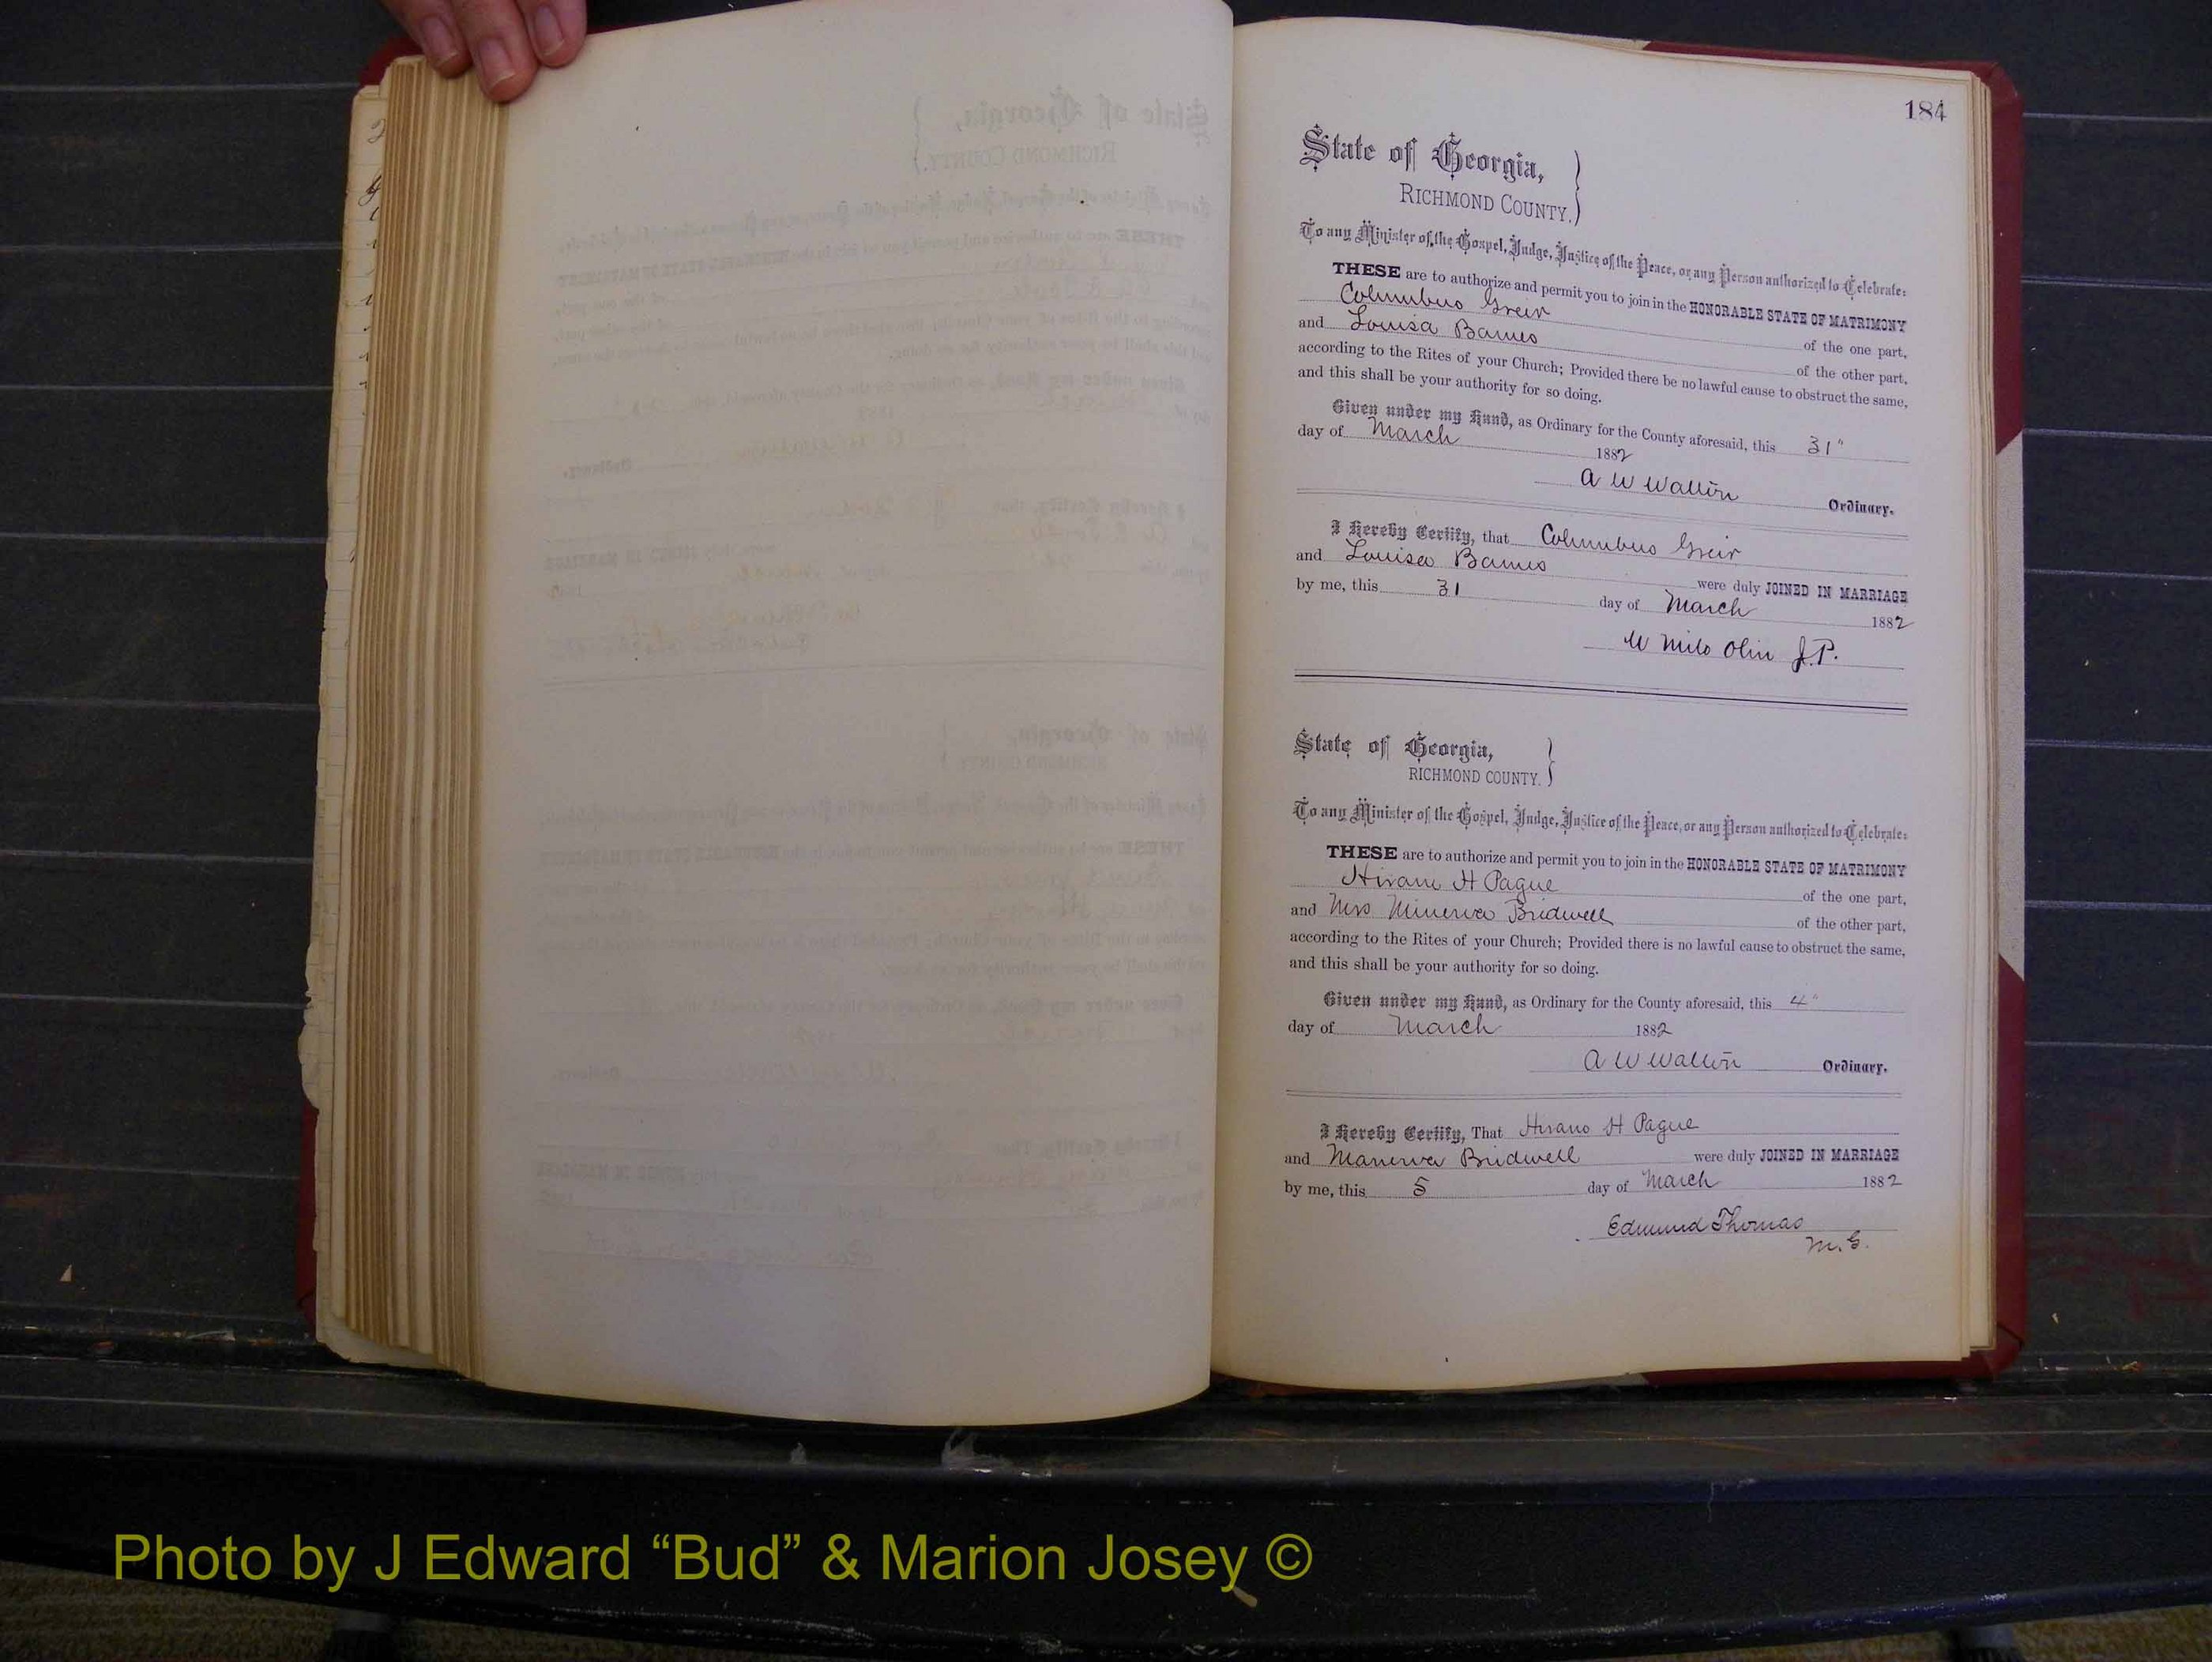 184
State of Georgia,
RICHMOND COUNTY.
To any Minister of the Gospel, Judge, Justice of the Peace, or any Person authorized to Celebrate:
THESE are to authorize and permit you to join in the HONORABLE STATE OF MATRIMONY
Columbus Greir of the one part,
and Louisa Barnes of the other part,
according to the Rites of your Church; Provided there be no lawful cause to obstruct the same,
and this shall be your authority for so doing.
Given under my Hand, as Ordinary for the County aforesaid, this 31"
day of March 1882
A W Walton Ordinary.
I Hereby Certify, that Columbus Greir
and Louisa Barnes were duly JOINED IN MARRIAGE
by me, this 31 day of March 1882
W Milo Olin J.P.
State of Georgia,
RICHMOND COUNTY.
To any Minister of the Gospel, Judge, Justice of the Peace, or any Person authorized to Celebrate:
THESE are to authorize and permit you to join in the HONORABLE STATE OF MATRIMONY
Hiram H Pague of the one part,
and Mrs Minerva Bridwell of the other part,
according to the Rites of your Church; Provided there is no lawful cause to obstruct the same,
and this shall be your authority for so doing.
Given under my Hand, as Ordinary for the County aforesaid, this 4"
day of March 1882
A W Walton Ordinary.
I Hereby Certify, That Hiram H Pague
and Manerva Bridwell were duly JOINED IN MARRIAGE
by me, this 5 day of March 1882
Edmund Thomas
M.G.
Photo by J Edward “Bud” & Marion Josey ©